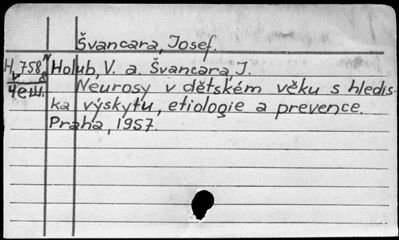 Švancara, Josef.
H, 758 Holub, V. a. Švancara, J.
Чеш. Neurosy v dětském věku s hledis-
ka výskytu, etiologie a prevence.
Praha, 1957.